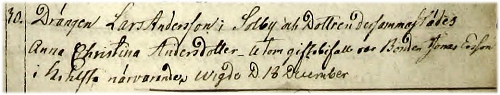 30. Drängen Lars Andersson i Solby och Dottren dersammastädes
Anna Christina Andersdotter giftobifall var Bonden Jonas Ersson
i närvarande, wigde D 18 December